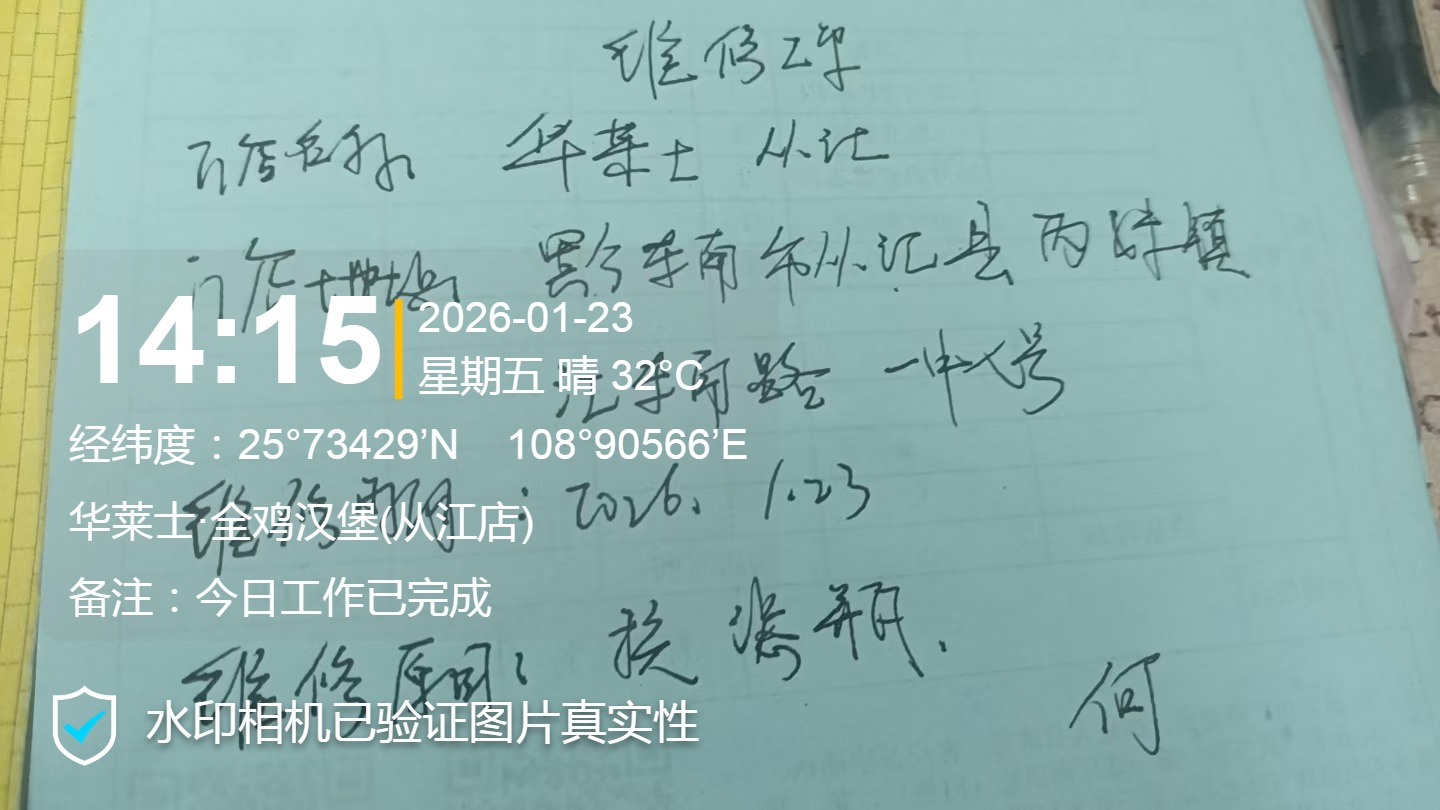 维修工单
门店名称 华莱士 从江
门店地址 黔东南州从江县丙妹镇
江东南路 一中 号
维修日期：2026.1.23
维修原因：换滤瓶.
何
14:15
2026-01-23
星期五 晴 32°C
经纬度：25°73429’N 108°90566’E
华莱士·全鸡汉堡(从江店)
备注：今日工作已完成
水印相机已验证图片真实性